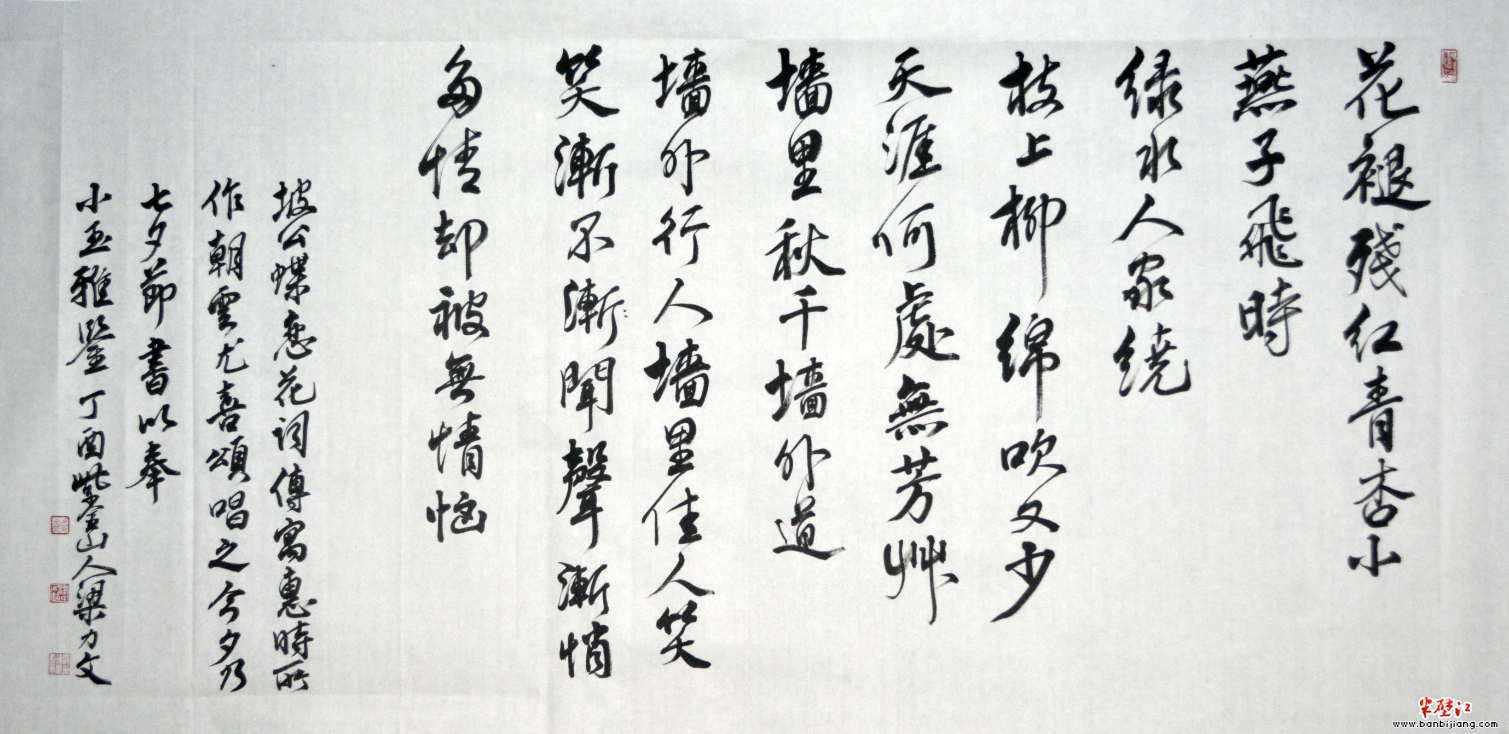 花褪殘红青杏小
燕子飛時
绿水人家绕
枝上柳绵吹又少
天涯何處無芳艸
墙里秋千墙外道
墙外行人墙里佳人笑
笑漸不漸聞聲漸悄
多情却被無情恼
坡公蝶恋花词傳寓惠時所
作朝雲尤喜頌唱之今夕乃
七夕節書以奉
小玉雅鑒丁酉紫金山人梁力文
半壁江
www.banbijiang.com